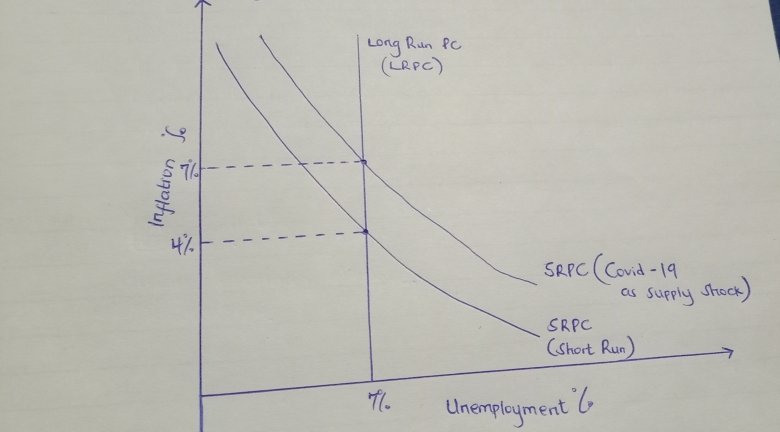 Long Run PC
(LRPC)
Inflation %
7%
4%
SRPC (Covid-19
as supply shock)
SRPC
(Short Run)
7%
Unemployment %